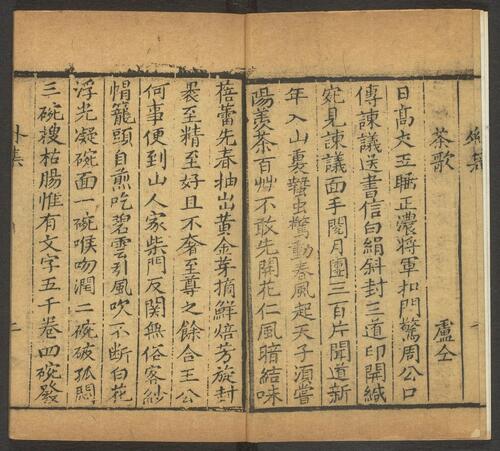 外集
茶歌
盧仝
日高丈五睡正濃將軍扣門驚周公口
傳諫議送書信白絹斜封三道印開緘
宛見諫議面手閱月團三百片聞道新
年入山裏蟄虫驚動春風起天子須嘗
陽羡茶百艸不敢先開花仁風暗結
蓓蕾先春抽出黃金芽摘鮮焙芳旋封
裹至精至好且不奢至尊之餘合王公
何事便到山人家柴門反関無俗客紗
帽籠頭自煎吃碧雲引風吹不断白花
浮光凝碗面一碗喉吻潤二碗破孤悶
三碗搜枯腸惟有文字五千卷四碗發
外集